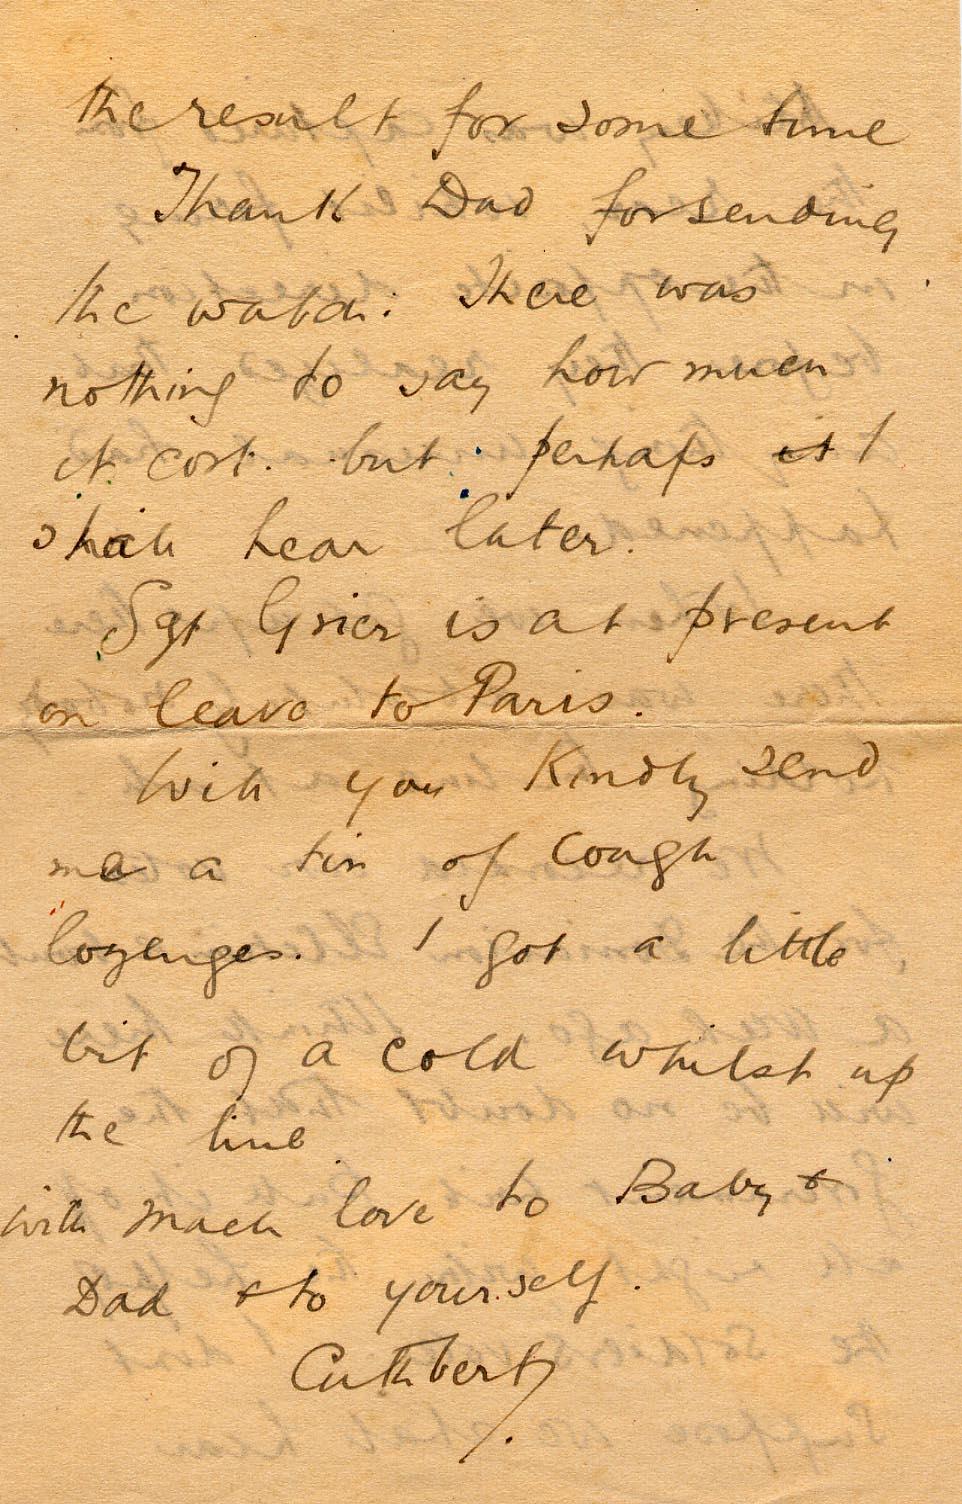 the result for some time
Thank Dad for sending
the watch. There was
nothing to say how much
it cost. but perhaps it I
shall hear later.
Sgt Grier is at present
on leave to Paris.
Will you Kindly send
me a tin of cough
lozenges. I got a little
bit of a cold whilst up
the line
with much love to Baby &
Dad & to yourself.
Cuthbert